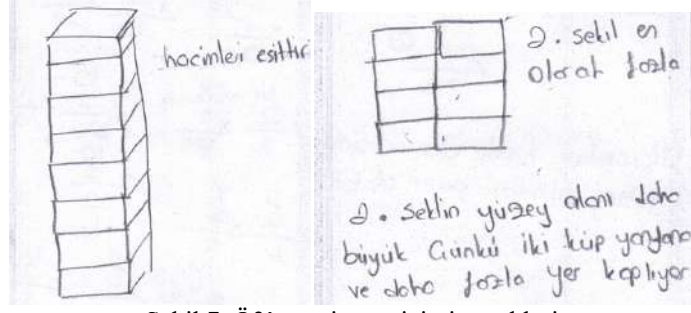 hacimleri eşittir
2. şekil en
olarak fazla
2. şeklin yüzey alanı daha
büyük Çünkü iki küp yanyana
ve daha fazla yer kaplıyor